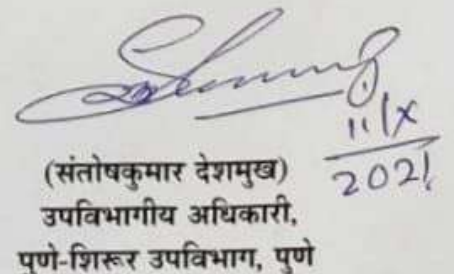 11/X
2021
(संतोषकुमार देशमुख)
उपविभागीय अधिकारी,
पुणे-शिरूर उपविभाग, पुणे